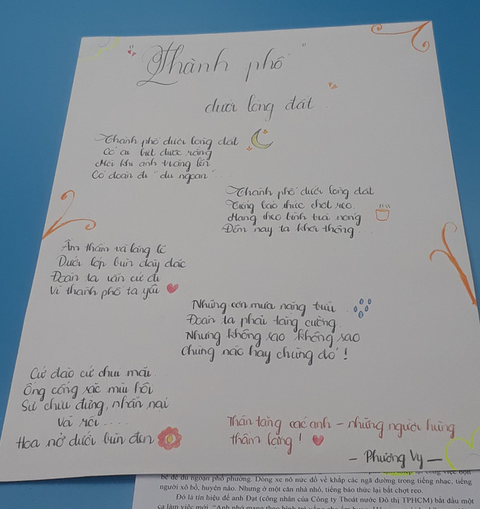 Thành phố
dưới lòng đất
Thành phố dưới lòng đất
Có ai biết được rằng
Mỗi khi ánh trăng lên
Có đoàn đi "du ngoạn"
Thành phố dưới lòng đất
Tiếng báo thức chợt reo
Mang theo bình trà nóng
Đêm nay ta khơi thông
Âm thầm và lặng lẽ
Dưới lớp bùn dày đặc
Đoàn ta vẫn cứ đi
Vì thành phố ta yêu
Những cơn mưa nặng trĩu
Đoàn ta phải tăng cường
Nhưng không sao không sao
Chúng nào hay chúng đó!
Cứ đào cứ chui mãi
Ống cống sặc mùi hôi
Sự chịu đựng, nhẫn nại
Và rồi ....
Hoa nở dưới bùn đen
Thân tặng các anh - những người hùng
thầm lặng!
- Phương Vy -
bè để du ngoạn phố phường. Dòng xe nô nức đổ về khắp các ngã đường trong tiếng nhạc, tiếng
người xô bồ, huyên náo. Nhưng ở một căn nhà nhỏ, tiếng báo thức lại bắt chợt reo.
Đó là tín hiệu để anh Đạt (công nhân của Công ty Thoát nước Đô thị TPHCM) bắt đầu một